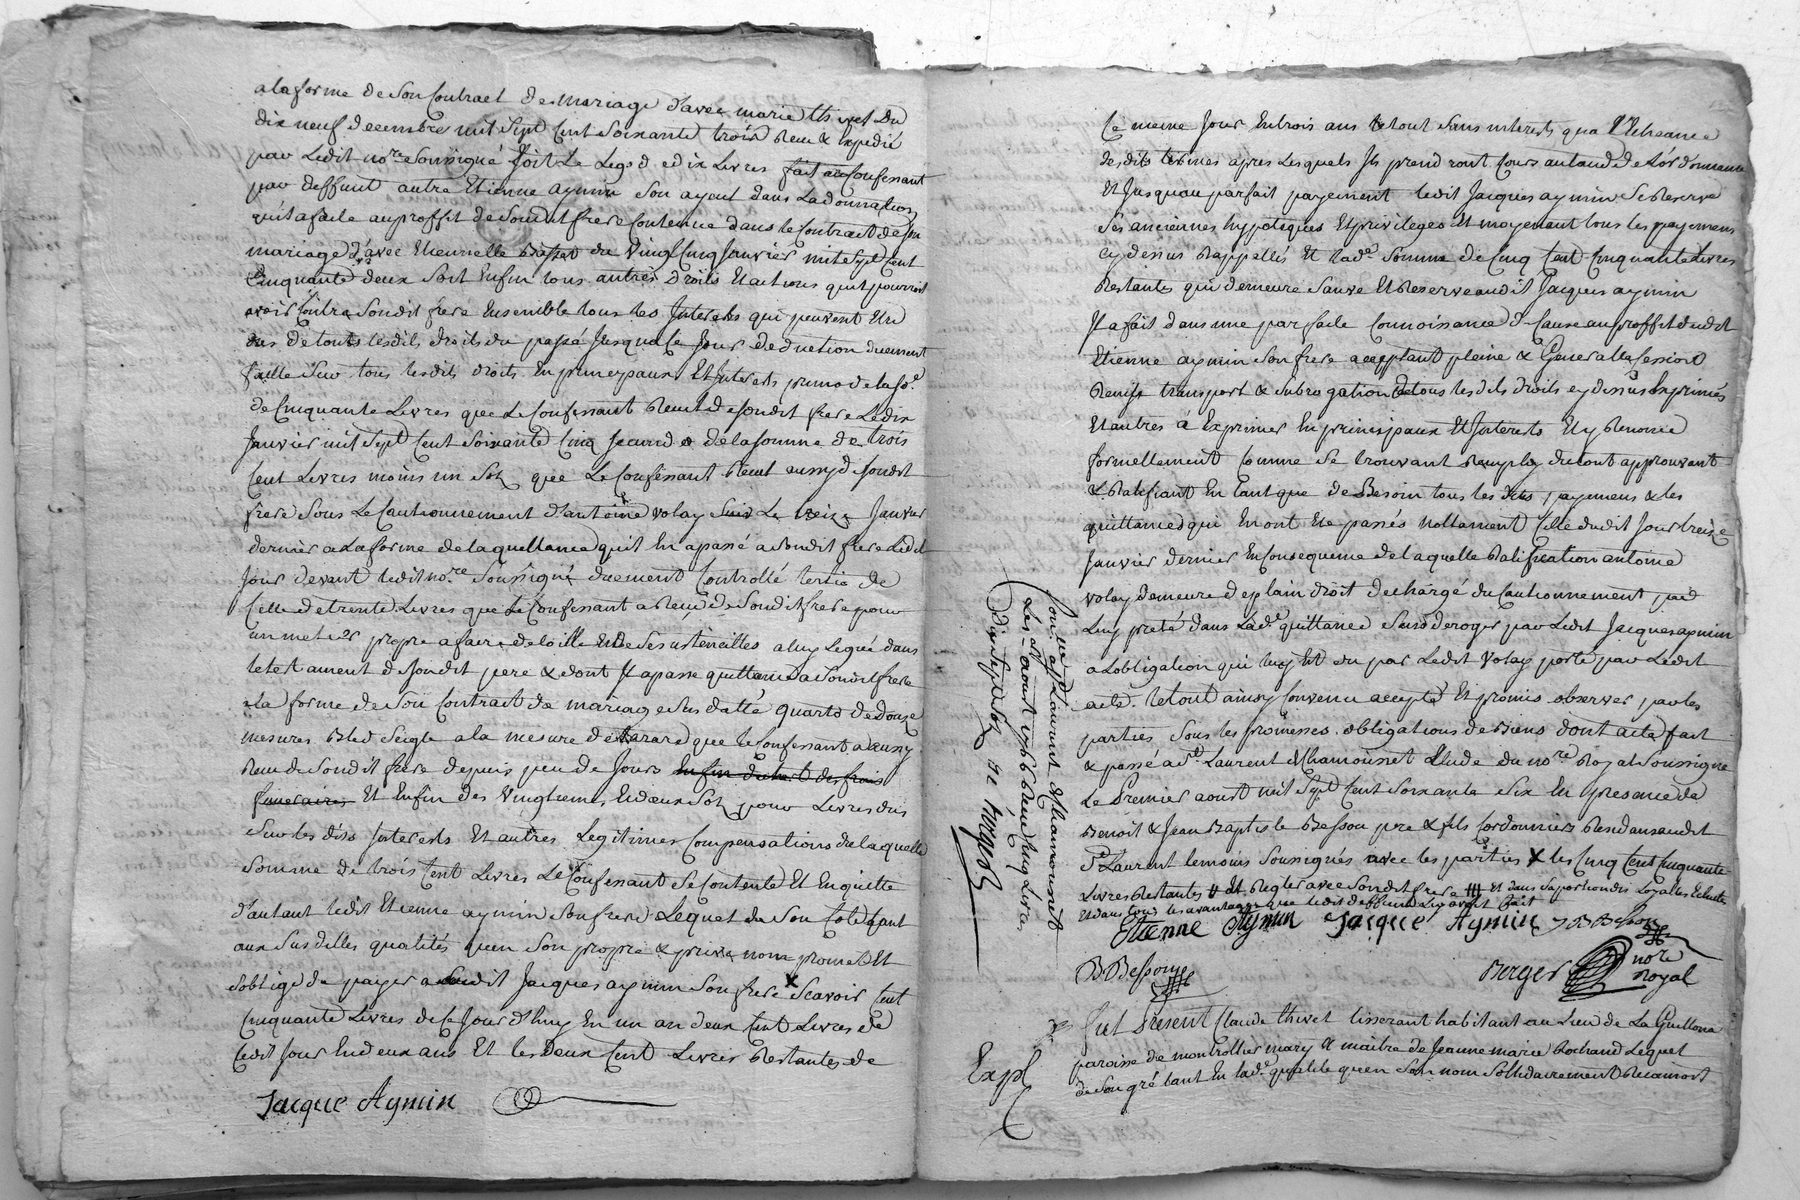 a la forme de son Contract de mariage d'avec marie thivet du
dix neuf decembre mil sept cent soixante trois Receu & Expedié
par Ledit nore. soussigné soit Le Legs de dix Livres fait au Confessant
par deffunt autre Etienne aymin son ayeul dans La donnation
qu'il a faite au proffit de sondit frere Contenue dans le Contract de son
mariage d'avec Etiennette du Vingt Cinq Janvier mil sept Cent
Cinquante deux soit Enfin tous autres droits Et actions quil pourroit
avoir Contre sondit frere Ensemble tous les Interets qui peuvent Etre
dus de touts lesdits droits du passé Jusqua Ce Jour deduction duement
faitte sur tous lesdits droits En principaux Et Interets primo de la so.e
de Cinquante Livres que Le Confessant Receut de sondit frere Le dix
Janvier mil sept Cent soixante Cinq secund o de la somme de trois
Cent Livres moins un sol que Le Confessant Receut aussy de sondit
frere sous Le Cautionnement d'antoine volay Le treize Janvier
dernier a La forme de la quittance quil En a passé a sondit frere Ledit
Jour devant ledit nore. soussigné duement Controllé tertio de
Celle de trente Livres que Le Confessant a Receu de sondit frere pour
un metier propre a faire de toille Et de ses ustencilles a luy Legué dans
le testament de sondit pere & dont Il a passé quittance a sondit frere
a la forme de son Contract de mariage sus datté quarto de douze
mesures Bled seigle a la mesure de tarare que le Confessant a aussy
Receu de sondit frere depuis peu de Jours Enfin du tiers des frais
funeraires Et Enfin des vingtiemes Et deux sols pour Livres dus
sur les dits Interets Et autres Legitimes Compensations de laquelle
somme de trois Cent Livres Le Confessant se Contente Et En quitte
d'autant ledit Etienne aymin son frere Lequel de son Coté tant
aux susdittes qualités qu'en son propre & privé nom promet Et
s'oblige de payer audit Jacques aymin son frere X scavoir Cent
Cinquante Livres de Ce Jour d'huy En un an deux Cent Livres de
Cedit Jour En deux ans Et les deux Cent Livres Restantes de
Jacque Aymin
Ce meme Jour En trois ans Le tout sans interests qua L'Echeance
desdits termes apres Lesquels Ils prendront Cours au taux de L'ordonnance
Et Jusqu'au parfait payement ledit Jacques aymin se Reserve
ses anciennes hypoteques Et privileges Et moyenant tous les payemens
cy dessus Rappellés Et Lade. somme de Cinq Cent Cinquante Livres
Restantes qui demeure sauve Et Reservé audit Jacques aymin
Il a fait dans une parfaite Connoissance de Cause au proffit dudit
Etienne aymin son frere acceptant pleine & Generalle Cession
Remise transport & subrogation de tous lesdits droits cy dessus Exprimés
Et autres á Exprimer En principaux Et Interests Et y Renonce
formellement Comme se trouvant Remply du tout approuvant
& Ratifiant En tant que de Besoin tous les dits payemens & les
quittances qui En ont Eté passés nottament Celle dudit Jour treize
Janvier dernier En Consequence de laquelle Ratification antoine
volay demeure de plain droit dechargé du Cautionnement par
Luy preté dans Lade. quittance sans deroger par Ledit Jacques aymin
a L'obligation qui luy Est du par Ledit volay porté par Ledit
acte. Le tout ainsy Convenu accepté Et promis observer par les
parties sous les promesses obligations de Biens dont acte fait
& passé a St. Laurent de Chamousset Etude du nore. Royal soussigné
Le Premier aoust mil sept Cent soixante six En presence de
Benoit & Jean Baptiste Besson pere & fils Cordonniers Residans audit
St. Laurent temoins soussignés avec les parties X les Cinq Cent Cinquante
Livres Restantes # Et Regler avec sondit frere ### Et dans sa portion des Loyalles Echutes
Et dans tous les avantages que ledit deffunt Luy avoit fait
Etienne Aymin Jacque Aymin J B Besson
B Besson Berger nore
Royal
Controllé a St. Laurent de Chamousset
Les aoust 1766 Receu Cinq Livres
dix sept sols
Berger
Expé
Fut Present Claude thivet tisserant habitant au Lieu de La Guillona
paroisse de montrottier mary & maitre de Jeanne marie Rochand Lequel
de son gré tant En lade. qualité qu'en son nom sollidairement Reconnoit